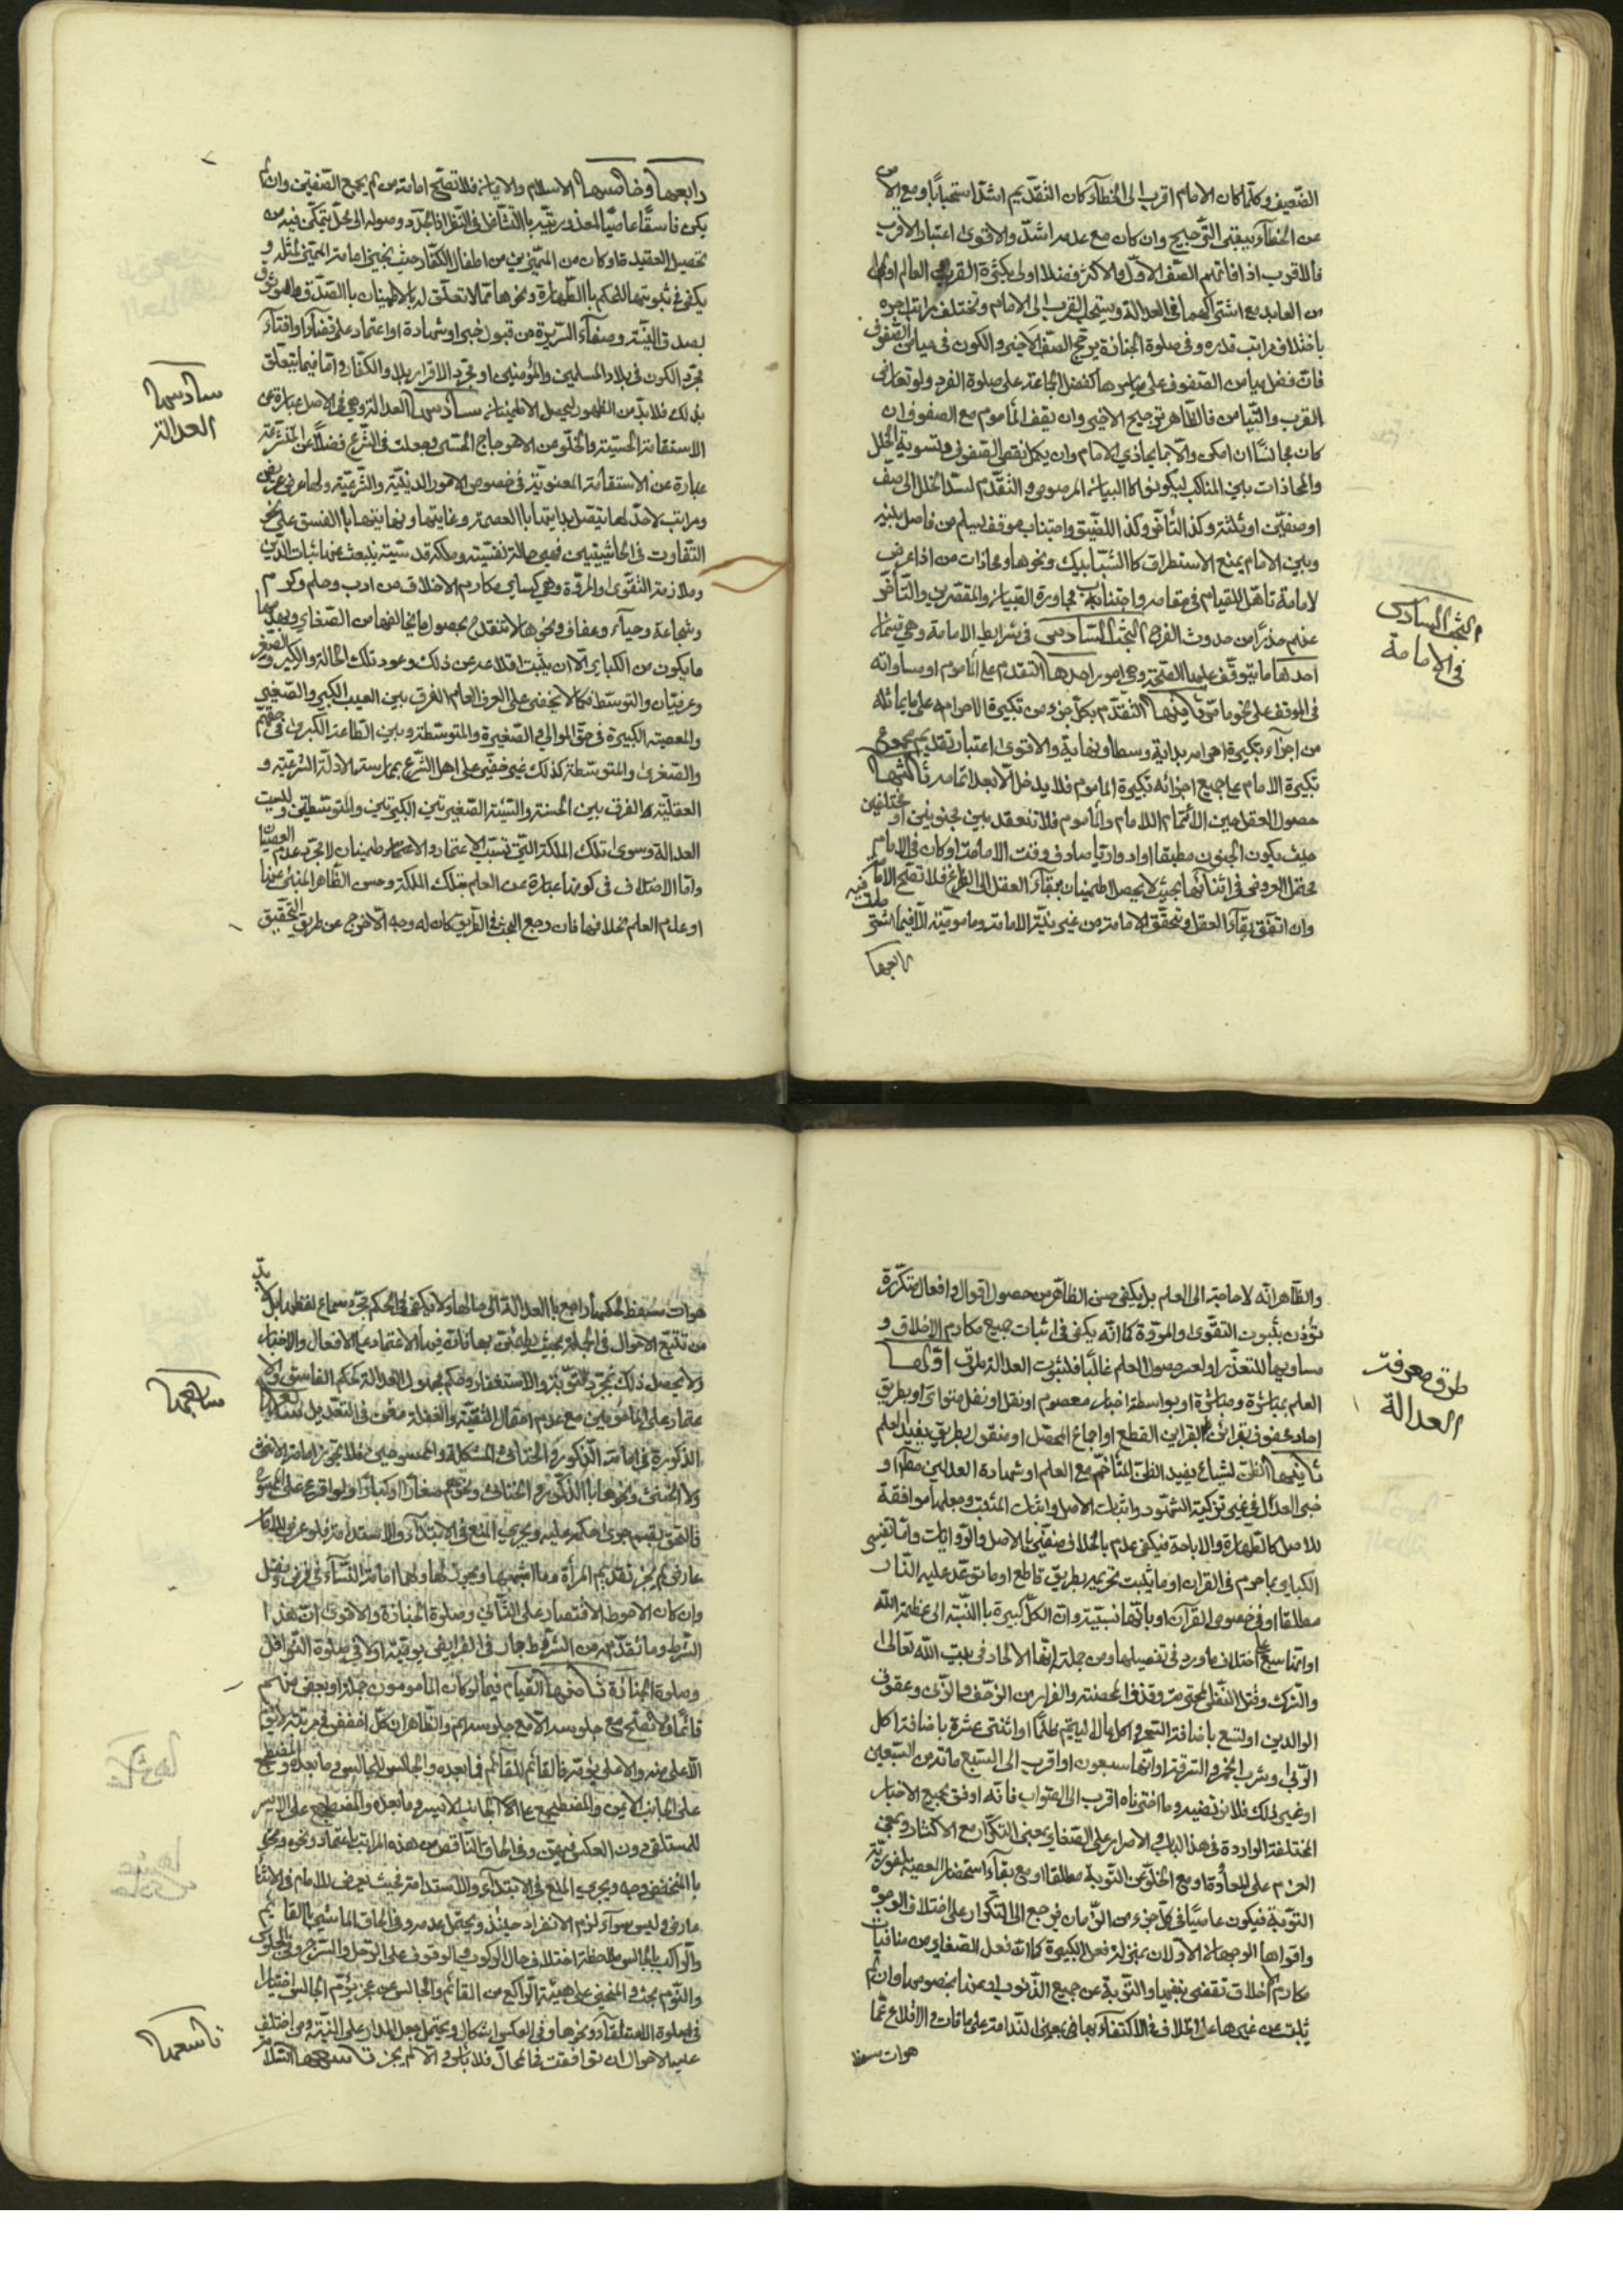 الضعيف وكلما كان الامام اقرب الى الخطاء كان التقديم اشد استحبابا ومع الامن
عن الخطاء يبقى الترجيح وان كان مع عدمه اشد والاقوى اعتبار الاقرب
فالاقرب اذا فاتهم الصف الاول والاكثر فضلا اولى بكثرة القرب العالم اولى
من العابد مع اشتراكهما في العدالة ويستحب القرب الى الامام وتختلف مراتب اجره
باختلاف مراتب قدره وفي صلوة الجنازة يرجح الصف الاخير والكون في ميامن الصفوف
فان فضل ميامن الصفوف على مياسرها كفضل الجماعة على صلوة الفرد ولو تعارض
القرب والتيامن فالظاهر ترجيح الاخير وان يقف المأموم مع الصفوف ان
كان مجانسا ان امكن والا فبما يحاذي الامام وان يكمل نقص الصفوف وتسوية الخلل
والمحاذات بين المناكب ليكونوا كالبنيان المرصوص والتقدم لسد الخلل الى صف
او صفين او ثلثة وكذا التأخر وكذا الضيق واجتناب موقف ليس من فاصل بينه
وبين الامام يمنع الاستطراق كالشبابيك ونحوها ومحاذات من اذا عرض
لامامه تأهل للقيام في مقامه واجتناب مجاورة الصبيان والمقصرين والتأخر
عنهم حذرا من حدوث الفرج البحث السادس في شرايط الامامة وهي قسمان
احدهما ما يتوقف عليه الصحة وهي امور احدها التقدم على المأموم او مساواته
في الموقف على نحو ما مر ثانيها التقدم بكل جزء من تكبيرة الاحرام على ما يماثله
من اجزاء تكبيرة احرامه بداية ووسطا ونهاية والاقوى اعتبار تقديم مجموع
تكبيرة الامام بجميع اجزائه تكبيرة المأموم فلا يدخل الا بعد اتمامه ثالثها
حصول العقل حين الائتمام للامام والمأموم فلا تنعقد بين مجنونين او مختلفين
حيث يكون الجنون مطبقا او ادواريا صادف وقت الامامة او كان في الامام
محتمل العروض في اثنائها بحيث لا يحصل اطمينان ببقاء العقل الى الفراغ فلا تصح الامامة
وان اتفق بقاء العقل وتحقق الامامة من غير نية الامامة ومأمومية الا فيما اشترطت فيه
رابعها
البحث السادس
في الامامة
رابعها وخامسها الاسلام والايمان فلا تصح امامة من لم يجمع الصفتين وان لم
يكن فاسقا عاصيا لمعذوريته بالتشاغل في النظر اذا تجدد وصوله الى محل يتمكن فيه من
تحصيل العقيدة او كان من المميزين من اطفال الكفار حيث نجيز امامة المميز لمثله و
يكفي في ثبوتها الحكم بالطهارة ونحوها مما لا تعلق له بالاطمينان بالصدق والوثوق
بصدق النية وصفاء السريرة من قبول خبر او شهادة او اعتماد على قضاء او افتاء
مجرد الكون في بلاد المسلمين والمؤمنين او مجرد الاقرار ببلاد الكفار واما فيما يتعلق
بذلك فلا بد من الظهور ليحصل الاطمينان سادسها العدالة وهي في الاصل عبارة عن
الاستقامة الحسية والخلو عن الاعوجاج الحسي وجعلت في الشرع فضلا عن المتشرعة
عبارة عن الاستقامة المعنوية في خصوص الامور الدينية والشرعية ولها عرض عريض
ومراتب لاحد لها تتصل بدايتها بالعصمة وغايتها ونهايتها بالفسق على نحو
التفاوت في الحاشيتين فهي حالة نفسية وملكة قدسية ينبعث عنها ثبات الدين
وملازمة التقوى والمروة وهي كساير مكارم الاخلاق من ادب وحلم وكرم
وشجاعة وحياء وعفاف ونحوها لا تنقدح بحصول ما يخالفها من الصغاير وبعد
ما يكون من الكباير الا ان يثبت اقلاعه عن ذلك وعود تلك الحالة والكبير والصغير
وعرفيان والتوسط كما لا يخفى على العرف العام الفرق بين العيب الكبير والصغير
والمعصية الكبيرة في حق الموالي والصغيرة والمتوسطة وبين الطاعة الكبرى في حقهم
والصغرى والمتوسطة كذلك غير خفي على اهل الشرع بممارسة الادلة الشرعية و
العقلية الفرق بين الحسنة والسيئة الصغيرتين الكبيرتين والمتوسطتين وليست
العدالة سوى تلك الملكة التي تسبب الاعتماد والاطمينان لا مجرد عدم العصيان
واما الاختلاف في كونها عبارة عن العلم بتلك الملكة وحسن الظاهر المنبئ عنها
او عدم العلم بخلافها فان رجع البحث في الطريق كان له وجه والا خرج عن طريق التحقيق
سادسها
العدالة
والظاهر انه لا حاجة الى العلم بل يكفي حسن الظاهر من حصول اقوال وافعال متكررة
تؤذن بثبوت التقوى والمروة كما انه يكفي في اثبات جميع مكارم الاخلاق و
مساويها للتعذر او لعسر حصول العلم غالبا فلثبوت العدالة طرق اولها
العلم بمباشرة ومباشرة او بواسطة اخبار معصوم او نقل او نقل متواتر او بطريق
احاد محفوف بقرائن القطع او اجماع المحصل او منقول بطريق يفيد العلم
ثانيها الظن لشياع يفيد الظن المتاخم مع العلم او شهادة العدلين مطلقا و
خبر العدل في غير تزكية الشهود واثبات الاصل واثبات المثبت وجعلها موافقة
للاصل كالطهارة والاباحة فيكفي عدم بالخلاف منفي بالاصل والروايات واما تفسير
الكباير بما حرم في القران او ما يثبت تحريمه بطريق قاطع او ما توعد عليه النار
مطلقا او في خصوص القرآن او بانها نسبية وان الكل كبيرة بالنسبة الى عظمة الله
او انها سبع على اختلاف ما ورد في تفصيلها ومن جملته انها الالحاد في بيت الله تعالى
والشرك وقتل النفس المحترمة وقذف المحصنة والفرار من الزحف والزنى وعقوق
الوالدين او لتسع باضافة السحر واكل مال اليتيم ظلما او اثنتى عشرة باضافة اكل
الربى وشرب الخمر والسرقة او انها سبعون او اقرب الى السبع مائة من السبعين
او غير ذلك فلا نرتضيه وما اخترناه اقرب الى الصواب فانه اوفق بجميع الاخبار
المختلفة الواردة في هذا الباب والاصرار على الصغاير بمعنى التكرار مع الاكثار وبمعنى
العزم على المعاودة او مع الخلو عن التوبة مطلقا او مع بقاء استحضار المعصية لفورية
التوبة فيكون عاصيا في كل جزء من الزمان فيرجع الى التكرار على اختلاف الوجوه
واقواها الوجهان الاولان بمنزلة فعل الكبيرة كما ان فعل الصغاير من منافيات
مكارم الاخلاق تقضي بنفيها والتوبة عن جميع الذنوب او عنها بخصوصها وان لم
يثبت عن غيرها على الخلاف في الاكتفاء بها في بمعنى الندامة على ما فات والاقلاع عما
هوات
طرق معرفة
العدالة
هوات يحفظ الحكم ارجع بالعدالة الى حالها ولا يكفي في الحكم مجرد سماع لفظها بل لا بد
من تتبع الاحوال في الجملة بحيث يطمئن بها فان فيها الاعتماد على الافعال والاخبار
ولا يحصل ذلك بمجرد التوبة والاستغفار وحكم مجهول العدالة كحكم الفاسق ولا
عتماد على المأمومين مع عدم احتمال التقية والغفلة مغن في التعديل سابعها
الذكورة في امامة الذكور والخناثى المشكلة والممسوحين فلا تجوز امامة الانثى
ولا الخنثى ونحوها بالذكور والخناثى ونحوهم صغارا او كبارا ولو اقرع على الخنثى
فالحق بقسم جرى حكمه عليه ويجري المنع في الابتداء والاستدامة فلو عرض للامام
عارض لم يجز تقديم المرأة وما اشبهها ويجوز لها ولهما امامة النساء في فرض ونفل
وان كان الاحوط الاقتصار على الثاني وصلوة الجنازة والاقوى ان هذا
الشرط وما تقدمه من الشروط جار في الفرايض يومية اولا في صلوة النوافل
وصلوة الجنازة ثامنها القيام فيما لو كان المأمومون جملة او بعض منهم
قائما ولا تصح مع جلوسه الا مع جلوسهم والظاهر ان كل اخفض في مرتبة لا يؤم
الاعلى منه والاعلى يؤمه فالقائم للقائم فما بعده والجالس للجالس وما بعده والمضطجع
على الجانب الايمن والمضطجع على الجانب الايسر وما بعده والمضطجع على الايسر
للمستلقي دون العكس فيهن وفي الحاق الناقص من هذه المراتب باعتماد ونحوه
بالمنخفض وجه ويجري المنع في الابتداء والاستدامة فحيث يعرض للامام في الاثناء
عارض وليس سواه لزم الانفراد حينئذ ويحتمل عدمه وفي الحاق الماشي بالقائم
والراكب بالجالس ملاحظة اختلاف حال الركوب والوقوف على الرحل والسرج وفي الجلوس
والنوم بحث والمنحني على هيئة الراكع من القائم والجالس عن عجز يؤم الجالس اختيارا
في صلوة الاستلقاء ونحوها وفي العكس اشكال ويحتمل جعل المدار على النية ومن اختلف
عليه الاحوال ان توافقت في الحال فلا بأس والا لم يجز تاسعها السلامة
سابعها
تاسعها